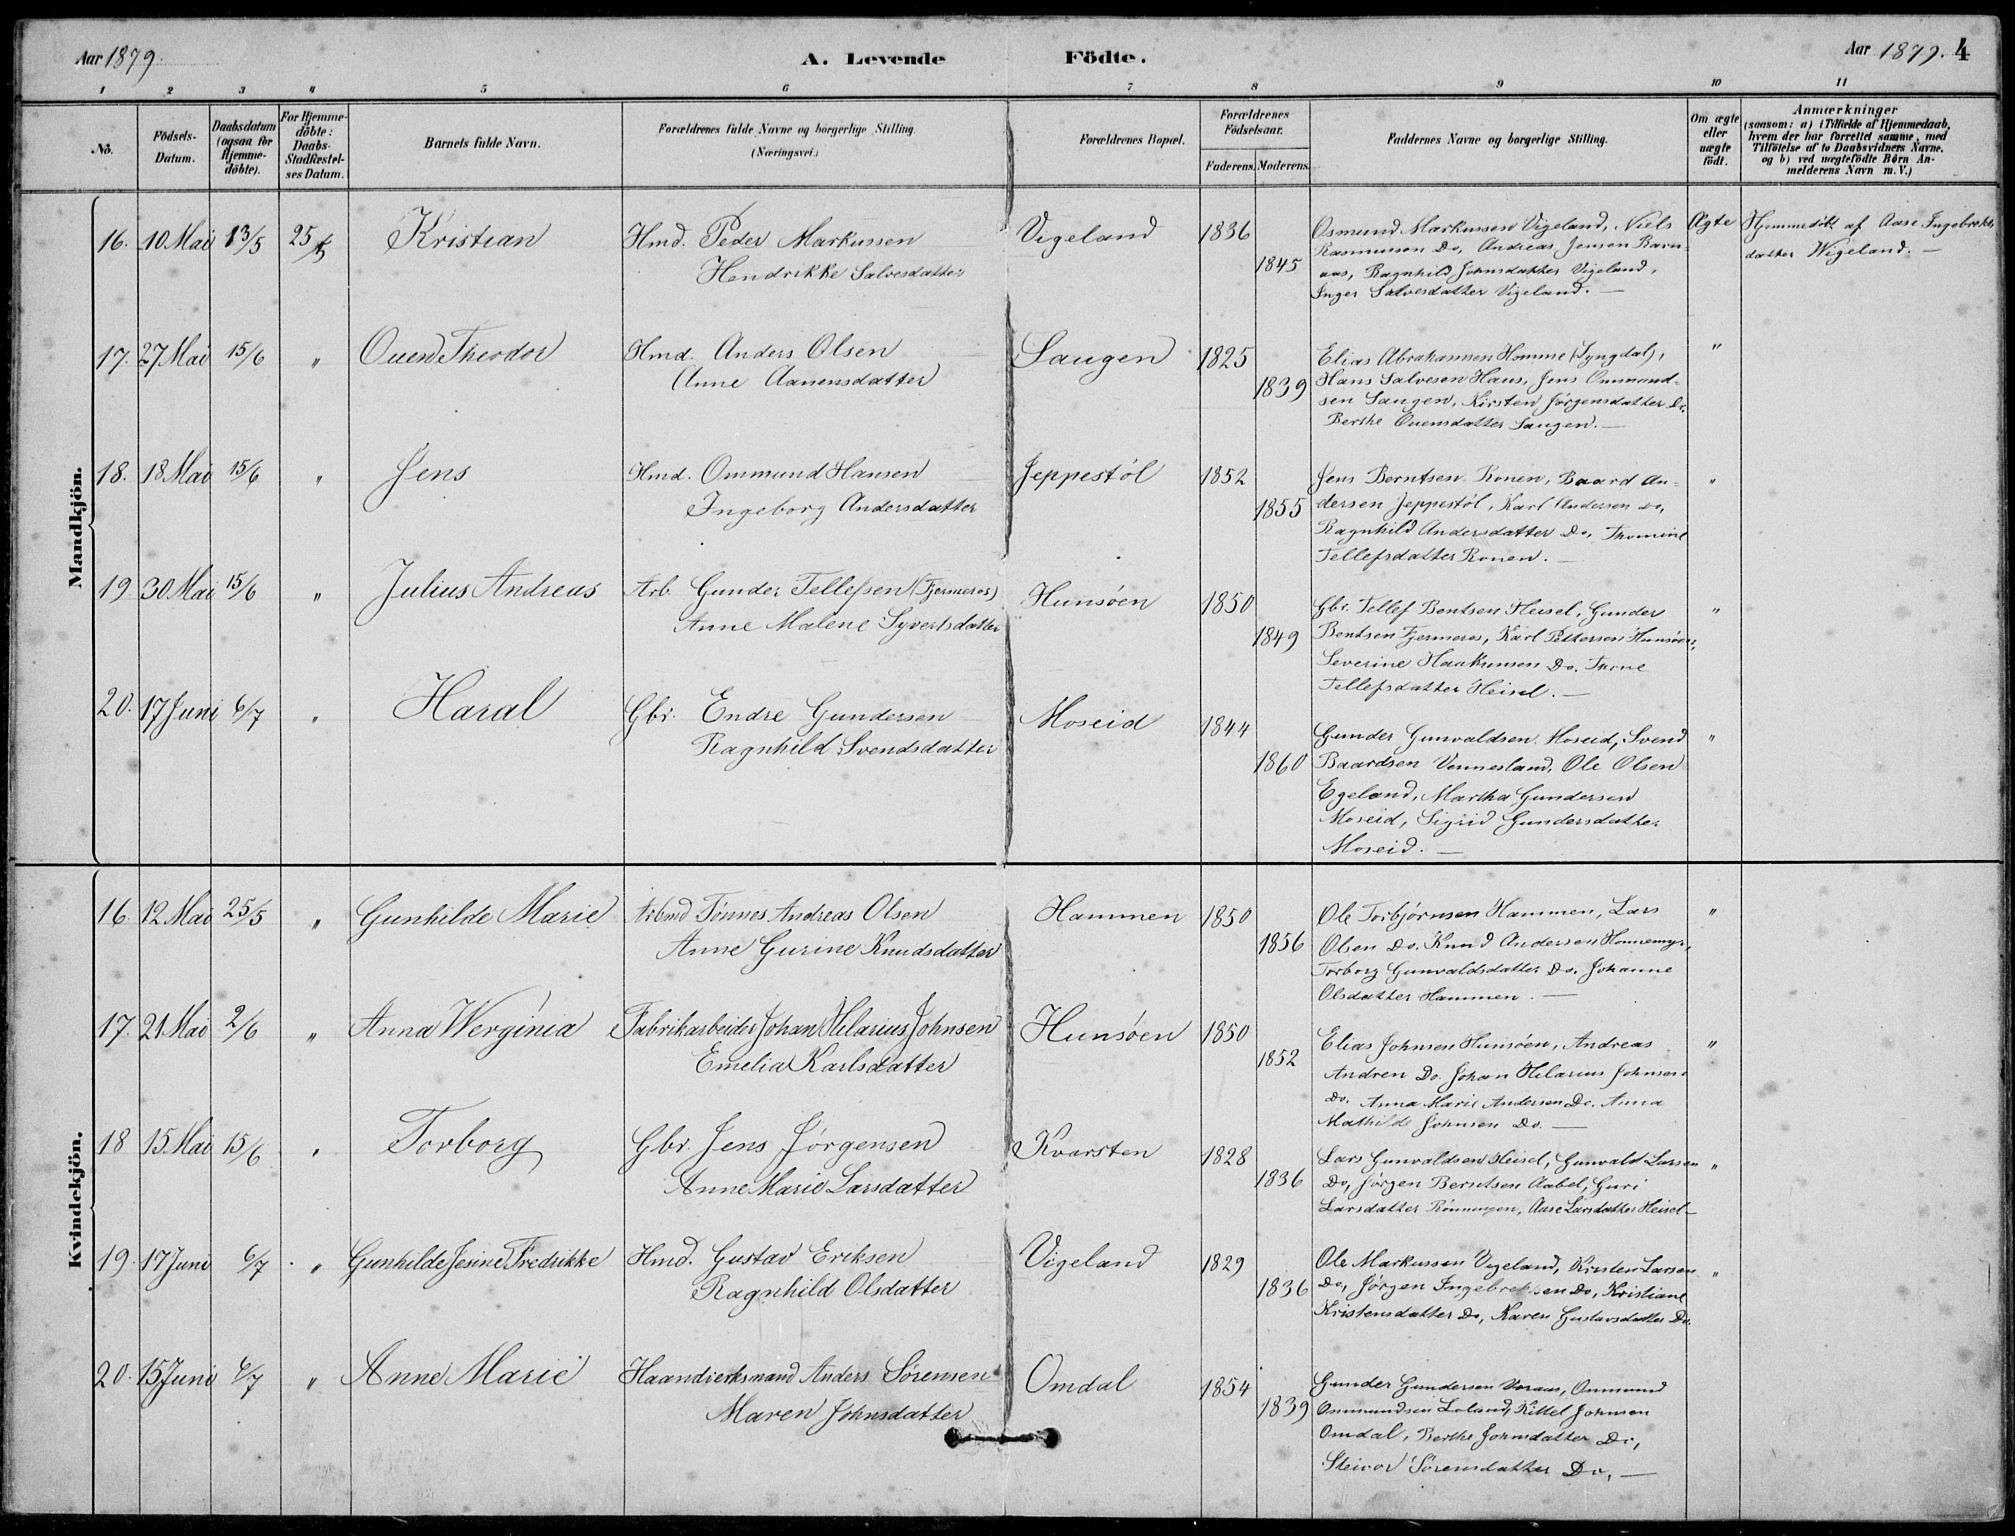 Aar 1879. A. Levende Födte. Aar 1879. 4
1 2 3 4 5 6 7 8 9 10 11
No. Födsels-Datum. Daabsdatum (ogsaa för Hjemmedöbte). For Hjemmedöbte: Daabs-Stadfæstelses Datum. Barnets fulde Navn. Forældrenes fulde Navne og borgerlige Stilling. (Næringsvei.) Forældrenes Bopæl. Forældrenes Födselsaar. Faderens. Moderens. Faddernes Navne og borgerlige Stilling. Om ægte eller uægte födt. Anmærkninger (saasom: a) i Tilfælde af Hjemmedaab, hvem der har forrettet samme, med Tilföielse af to Daabsvidners Navne, og b) ved uægtefödte Börn Anmelderens Navn m. V.)
Mandkjön.
16. 10 Mai 13/5 25/5 Kristian Hmd. Peder Markussen Vigeland 1836 Osmund Markussen Vigeland, Niels Ægte Hjemmedöbt af Aase Ingebrekts
Hendrikke Salvesdatter 1845 Rasmussen Do, Andreas Jensen Barn- datter Wigeland. —
aas, Ragnhild Johnsdatter Vigeland,
Inger Salvesdatter Vigeland. —
17. 27 Mai 15/6 " Ouen Theodor Hmd. Anders Olsen Saugen 1825 Elias Abrahamsen Homme (Lyngdal), "
Anne Aanensdatter 1839 Hans Salvesen Haus, Jens Ommund-
sen Saugen, Kirsten Jörgensdatter Do.
Berthe Ouensdatter Saugen. —
18. 18 Mai 15/6 " Jens Hmd. Ommund Hansen Jeppestöl 1852 Jens Berntsen Ronen, Baard An- "
Ingeborg Andersdatter 1855 dersen Jeppestöl, Karl Andersen Do,
Ragnhild Andersdatter Do, Thomine
Tellefsdatter Ronen. —
19. 30 Mai 15/6 " Julius Andreas Arb. Gunder Tellefsen (Fjermeros) Hunsöen 1850 Gbr. Tellef Bentsen Heisel, Gunder "
Anne Malene Syvertsdatter 1849 Bentsen Fjermeros, Karl Pettersen Hunsöen,
Severine Haakensen Do. Thone
Tellefsdatter Heisel. —
20. 17 Juni 6/7 " Haral Gbr. Endre Gundersen Moseid 1844 Gunder Gunvaldsen Moseid, Svend "
Ragnhild Svendsdatter 1860 Baardsen Vennesland, Ole Olsen
Egeland, Martha Gundersen
Moseid, Sigrid Gundersdatter
Moseid. —
Kvindekjön.
16. 12 Mai 25/5 " Gunhilde Marie Arbmd Tönnes Andreas Olsen Hammen 1850 Ole Torbjörnsen Hammen, Lars "
Anne Gurine Knudsdatter 1856 Olsen Do. Knud Andersen Honnemyr,
Torborg Gunvaldsdatter Do. Johanne
Olsdatter Hammen. —
17. 21. Mai 2/6 " Anna Werginia Fabrikarbeider Johan Hilarius Johnsen Hunsöen 1850 Elias Johnsen Hunsöen, Andreas "
Emelia Karlsdatter 1852 Andren Do. Johan Hilarius Johnsen
Do. Anna Marie Andersen Do. Anna
Mathilde Johnsen Do. —
18 15. Mai 15/6 " Torborg Gbr. Jens Jörgensen Kvarsten 1828 Lars Gunvaldsen Heisel, Gunvald Larsen "
Anne Marie Larsdatter 1836 Do, Jörgen Berntsen Aabel, Guri
Larsdatter Rönningen, Aase Larsdatter Heisel —
19. 17 Juni 6/7 " Gunhilde Jesine Fredrikke Hmd. Gustav Eriksen Vigeland 1829 Ole Markussen Vigeland, Kirsten Larsen "
Ragnhild Olsdatter 1836 Do, Jörgen Ingebrektsen Do, Kristiane
Kristensdatter Do, Karen Gustavsdatter Do.
20. 15 Juni 6/7 " Anne Marie Haandverksmand Anders Sörensen Omdal 1854 Gunder Gundersen Voraas, Ommund
Maren Johnsdatter 1839 Ommundsen Loland, Kittel Johnsen
Omdal, Berthe Johnsdatter Do,
Steivor Sörensdatter Do, —